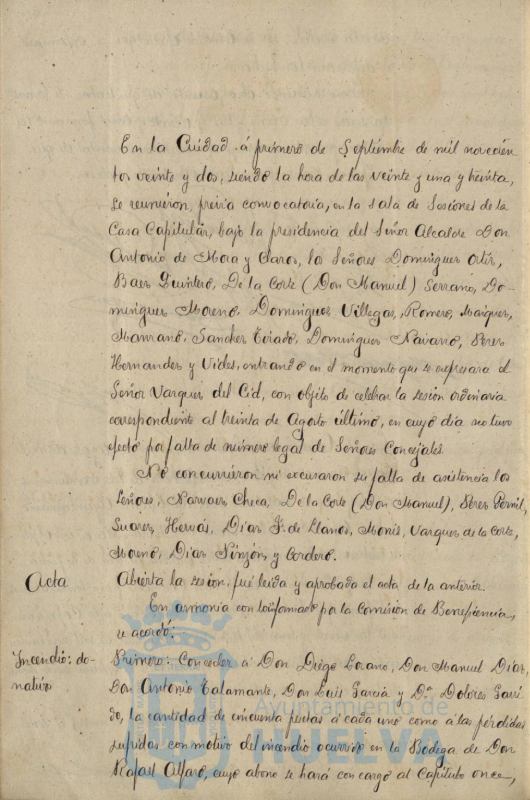 En la Cuidad á primero de Septiembre de mil novecien
tos veinte y dos, siendo la hora de las veinte y una y treinta,
se reunieron, previa convocatoria, en la sala de Sesiones de la
Casa Capitular, bajo la presidencia del Señor Alcalde Don
Antonio de Mora y Claros, los Señores Dominguez Ortiz,
Baez Quintero, De la Corte (Don Manuel) Serrano, Do-
minguez Moreno, Dominguez Villegas, Romero,
Manzano, Sanchez Tirado, Dominguez Navarro, Perez
Hernandez y Vides, entrando en el momento que se expresará el
Señor Vazquez del Cid, con objeto de celebrar la sesion ordinaria
correspondiente al treinta de Agosto último, en cuyo dia no tuvo
efecto por falta de número legal de Señores Concejales.
No concurrieron ni excusaron su falta de asistencia los
Señores, Narvaez Checa, De la Corte (Don Manuel), Perez
Suarez, Hervás, Diaz F. de Llanos, Monis, Vazquez de la Corte,
Moreno, Diaz Pinzón, y Cordero.
Acta
Abierta la sesion, fué leida y aprobada el acta de la anterior.
En armonia con lo informado por la Comision de Beneficencia,
se acordó:
Incendio: do-
nativo
Primero: Conceder á Don Diego Lozano, Don Manuel Diaz,
Don Antonio Talamante, Don Luis Garcia y Dª. Dolores Garri-
do, la cantidad de cincuenta pesetas á cada uno como á las perdidas
sufridas con motivo del incendio ocurrido en la Bodega de Don
Rafael Alfaro, cuyo abono se hará con cargo al Capitulo once,
Ayuntamiento de
HUELVA